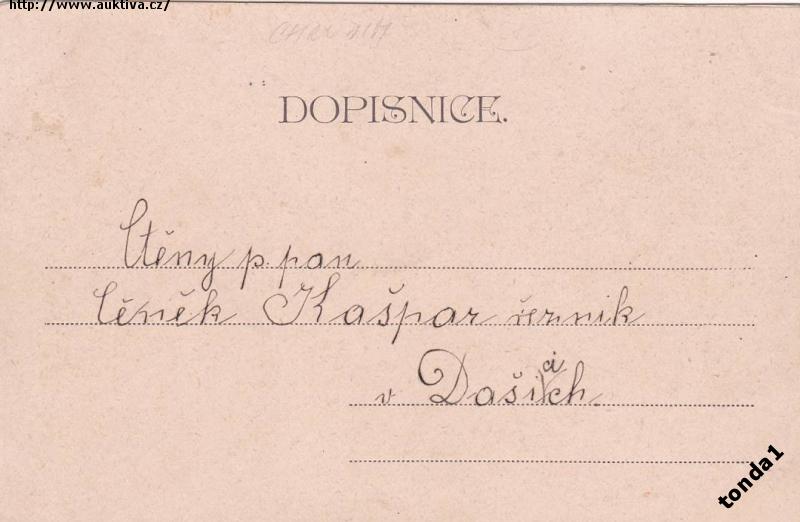 http://www.auktiva.cz/
DOPISNICE.
Ctěny p. pan
Čeněk Kašpar řezník
v Dašicich
tonda1